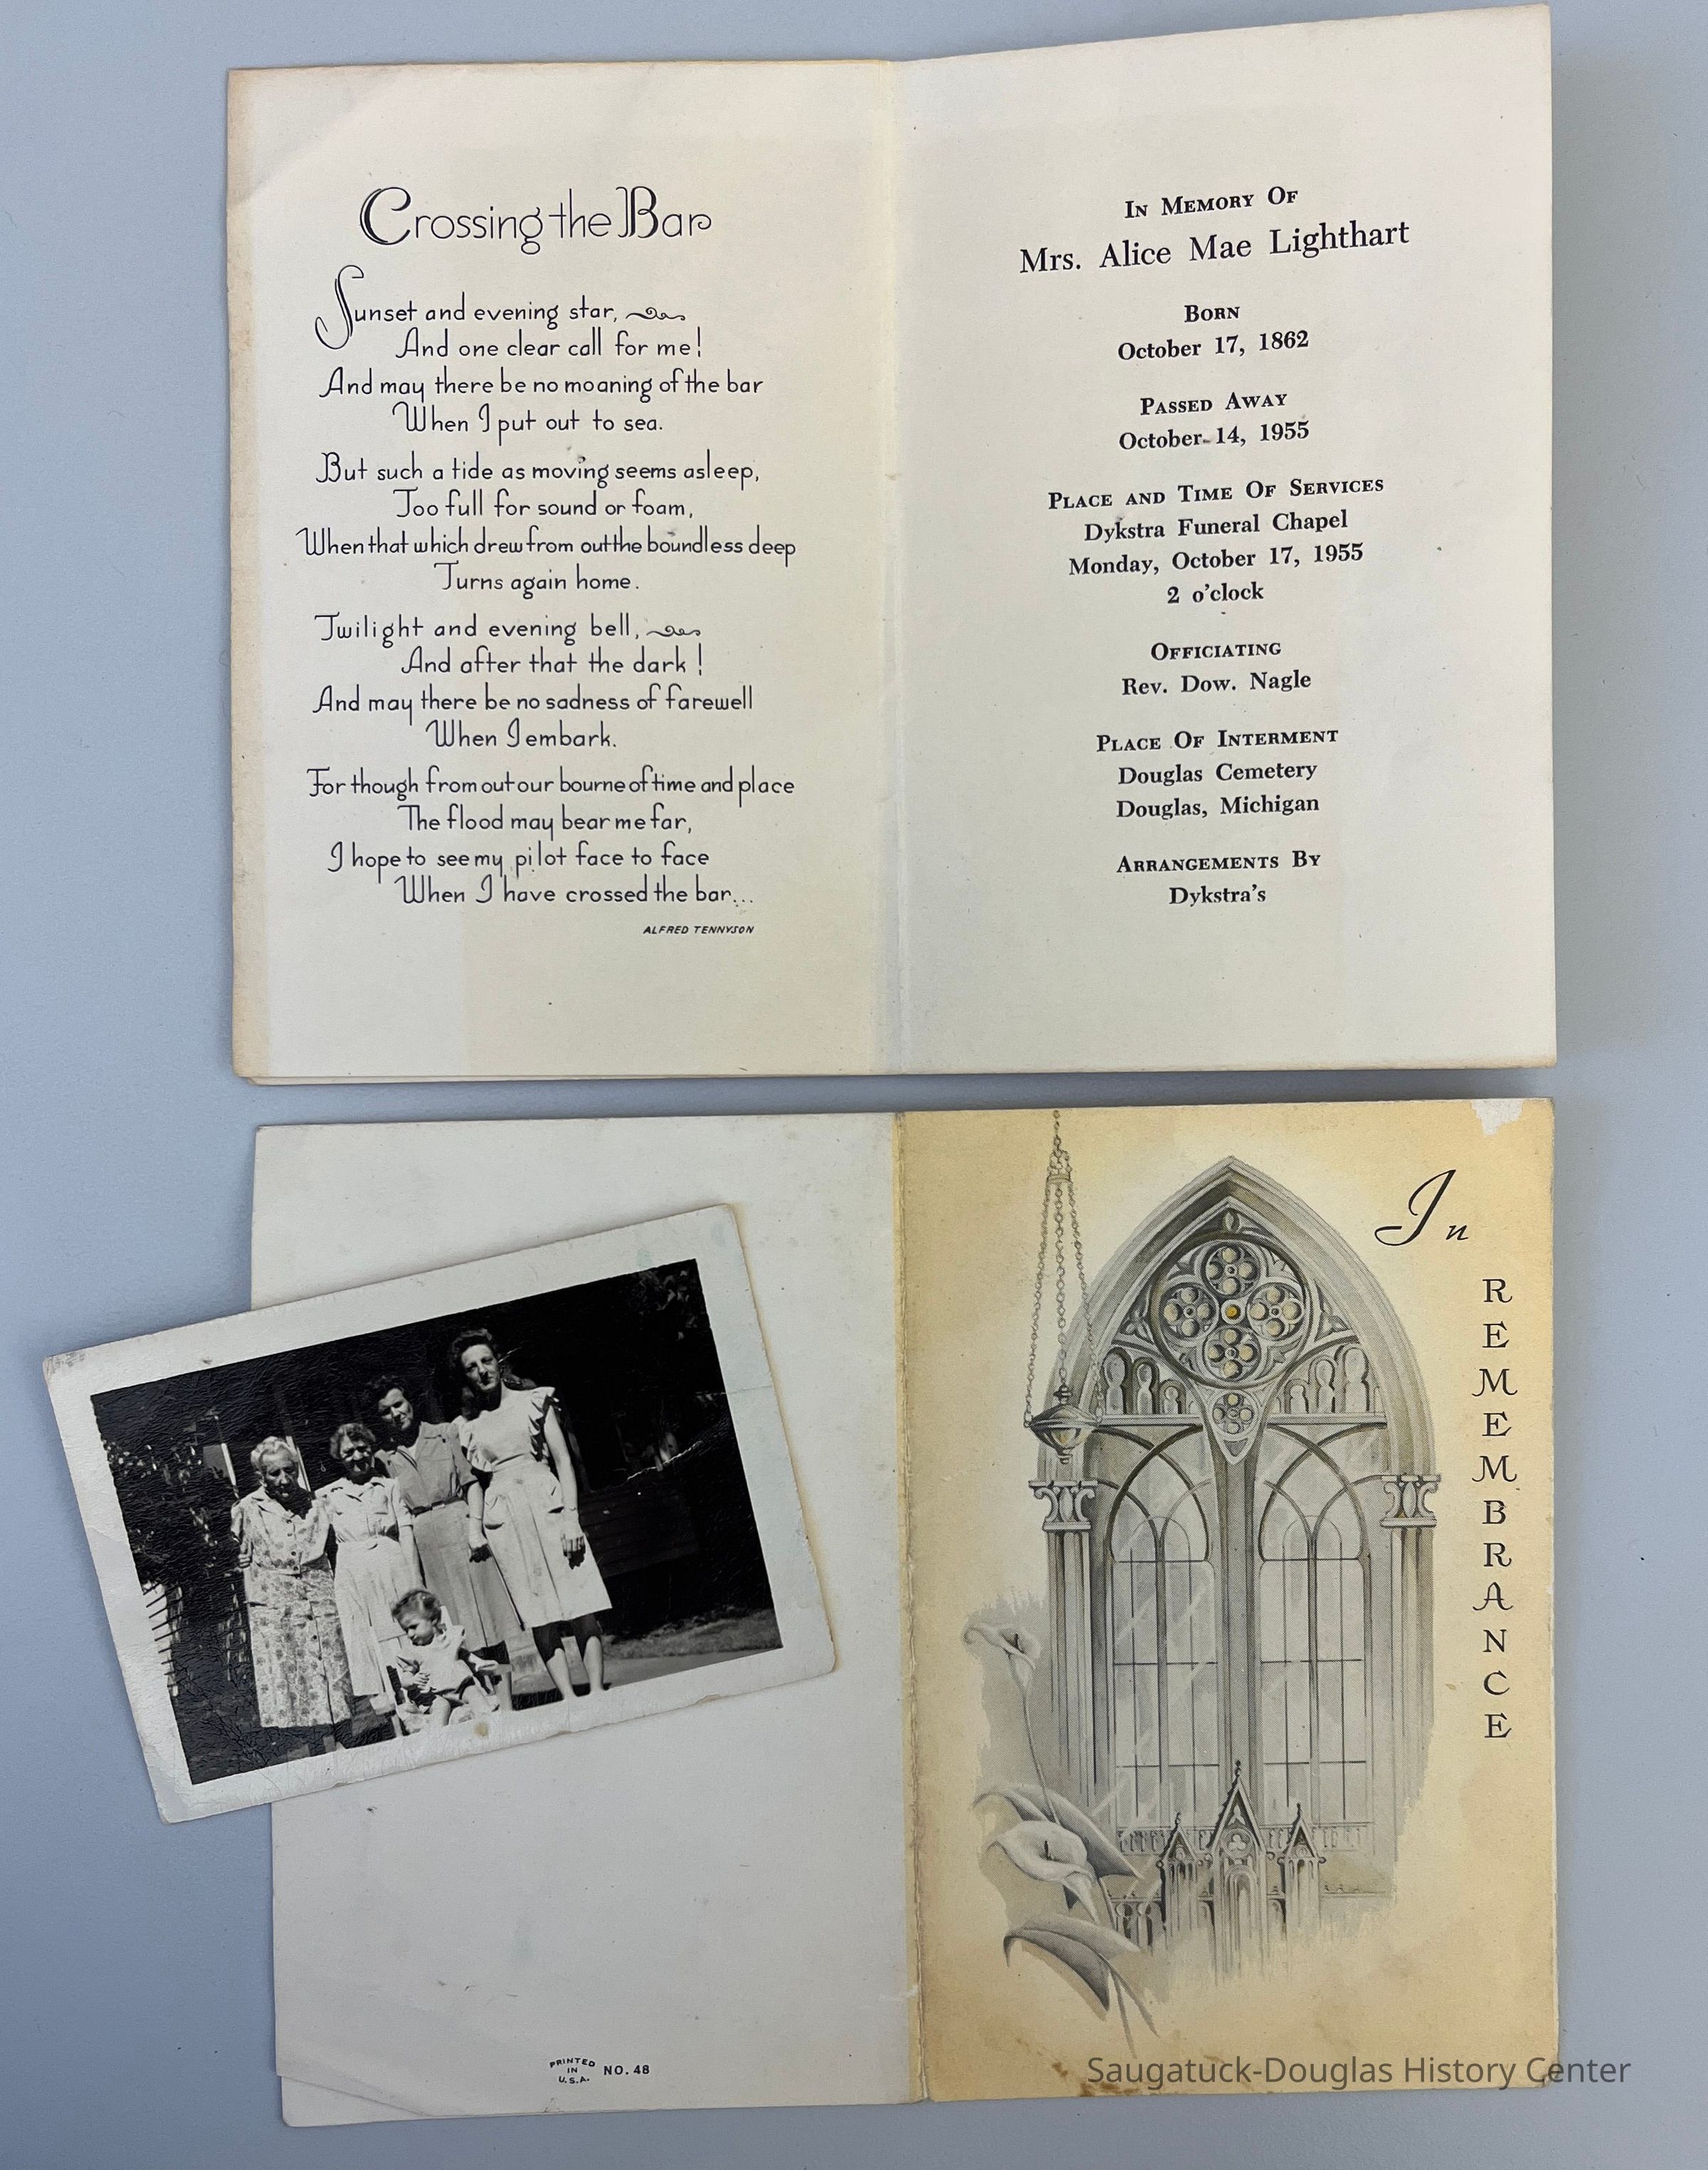 Crossing the Bar
Sunset and evening star,
And one clear call for me!
And may there be no moaning of the bar
When I put out to sea.
But such a tide as moving seems asleep,
Too full for sound or foam,
When that which drew from out the boundless deep
Turns again home.
Twilight and evening bell,
And after that the dark!
And may there be no sadness of farewell
When I embark.
For though from out our bourne of time and place
The flood may bear me far,
I hope to see my pilot face to face
When I have crossed the bar...
ALFRED TENNYSON
In Memory Of
Mrs. Alice Mae Lighthart
Born
October 17, 1862
Passed Away
October 14, 1955
Place and Time Of Services
Dykstra Funeral Chapel
Monday, October 17, 1955
2 o'clock
Officiating
Rev. Dow. Nagle
Place Of Interment
Douglas Cemetery
Douglas, Michigan
Arrangements By
Dykstra's
In
REMEMBRANCE
PRINTED
IN
U.S.A.
NO. 48
Saugatuck-Douglas History Center